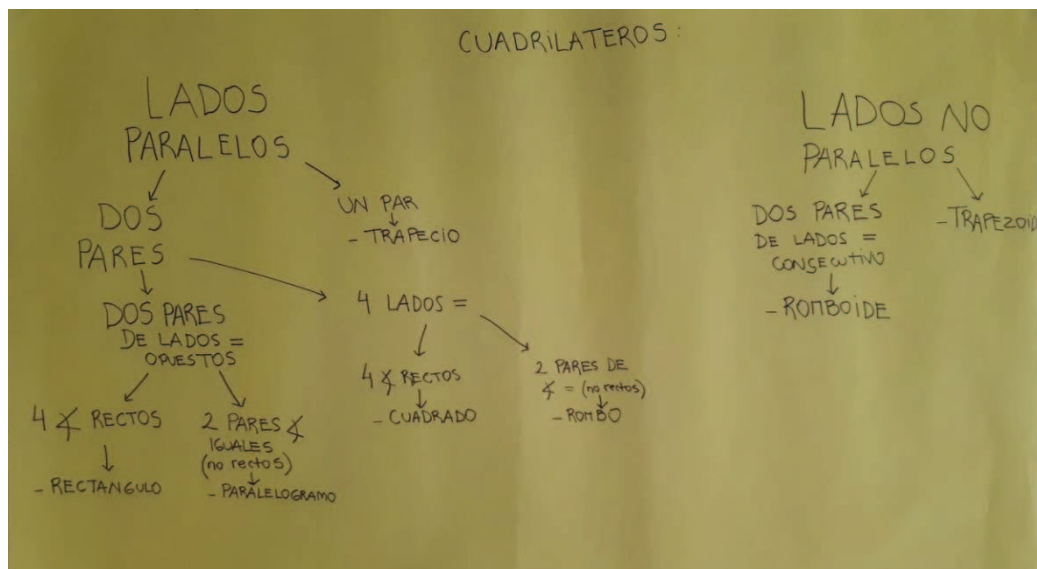 CUADRILATEROS:
LADOS
PARALELOS
DOS
PARES
UN PAR
- TRAPECIO
DOS PARES
DE LADOS =
OPUESTOS
4 ∡ RECTOS
- RECTANGULO
2 PARES ∡
IGUALES
(no rectos)
- PARALELOGRAMO
4 LADOS =
4 ∡ RECTOS
- CUADRADO
2 PARES DE
∡ = (no rectos)
- ROMBO
LADOS NO
PARALELOS
DOS PARES
DE LADOS =
CONSECUTIVO
- ROMBOIDE
- TRAPEZOID